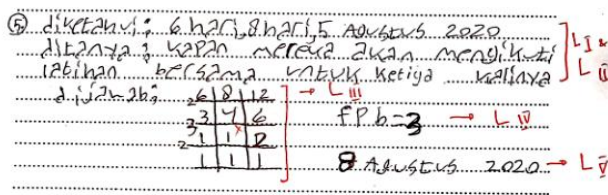 ⑤ diketahui: 6 hari, 8 hari, 5 Agustus 2020
ditanya: kapan mereka akan mengikuti L I &
latihan bersama untuk ketiga kalinya L II
dijawab: 2 6 | 8 | 12 → L III
3 3 | 4 | 6 FPb = 3 → L IV
2 1 | 1 | 2
1 | 1 | 1 8 Agustus 2020 → L V